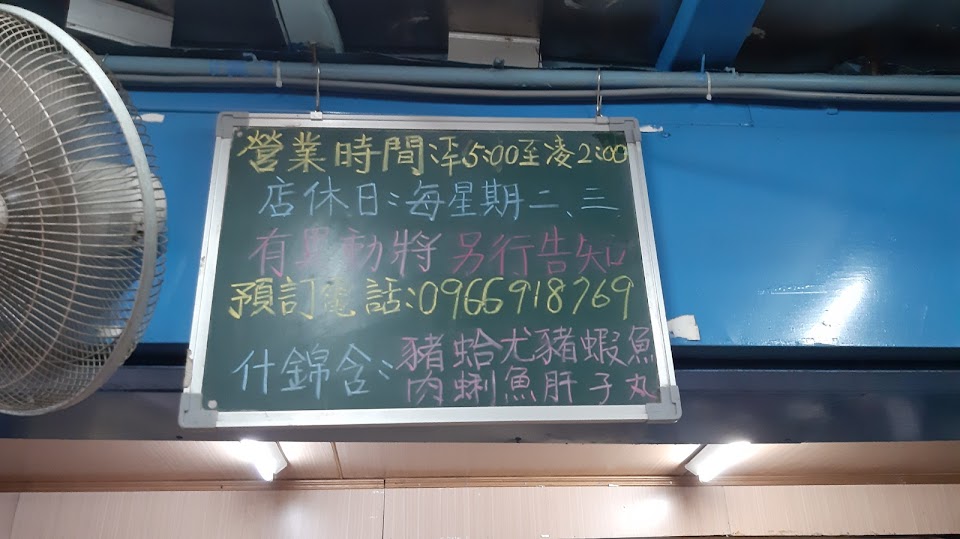 營業時間:下午5:00至凌2:00
店休日:每星期二、三
有異動將另行告知
預訂電話:0966918769
什錦含:豬肉 蛤蜊 尤魚 豬肝 蝦子 魚丸